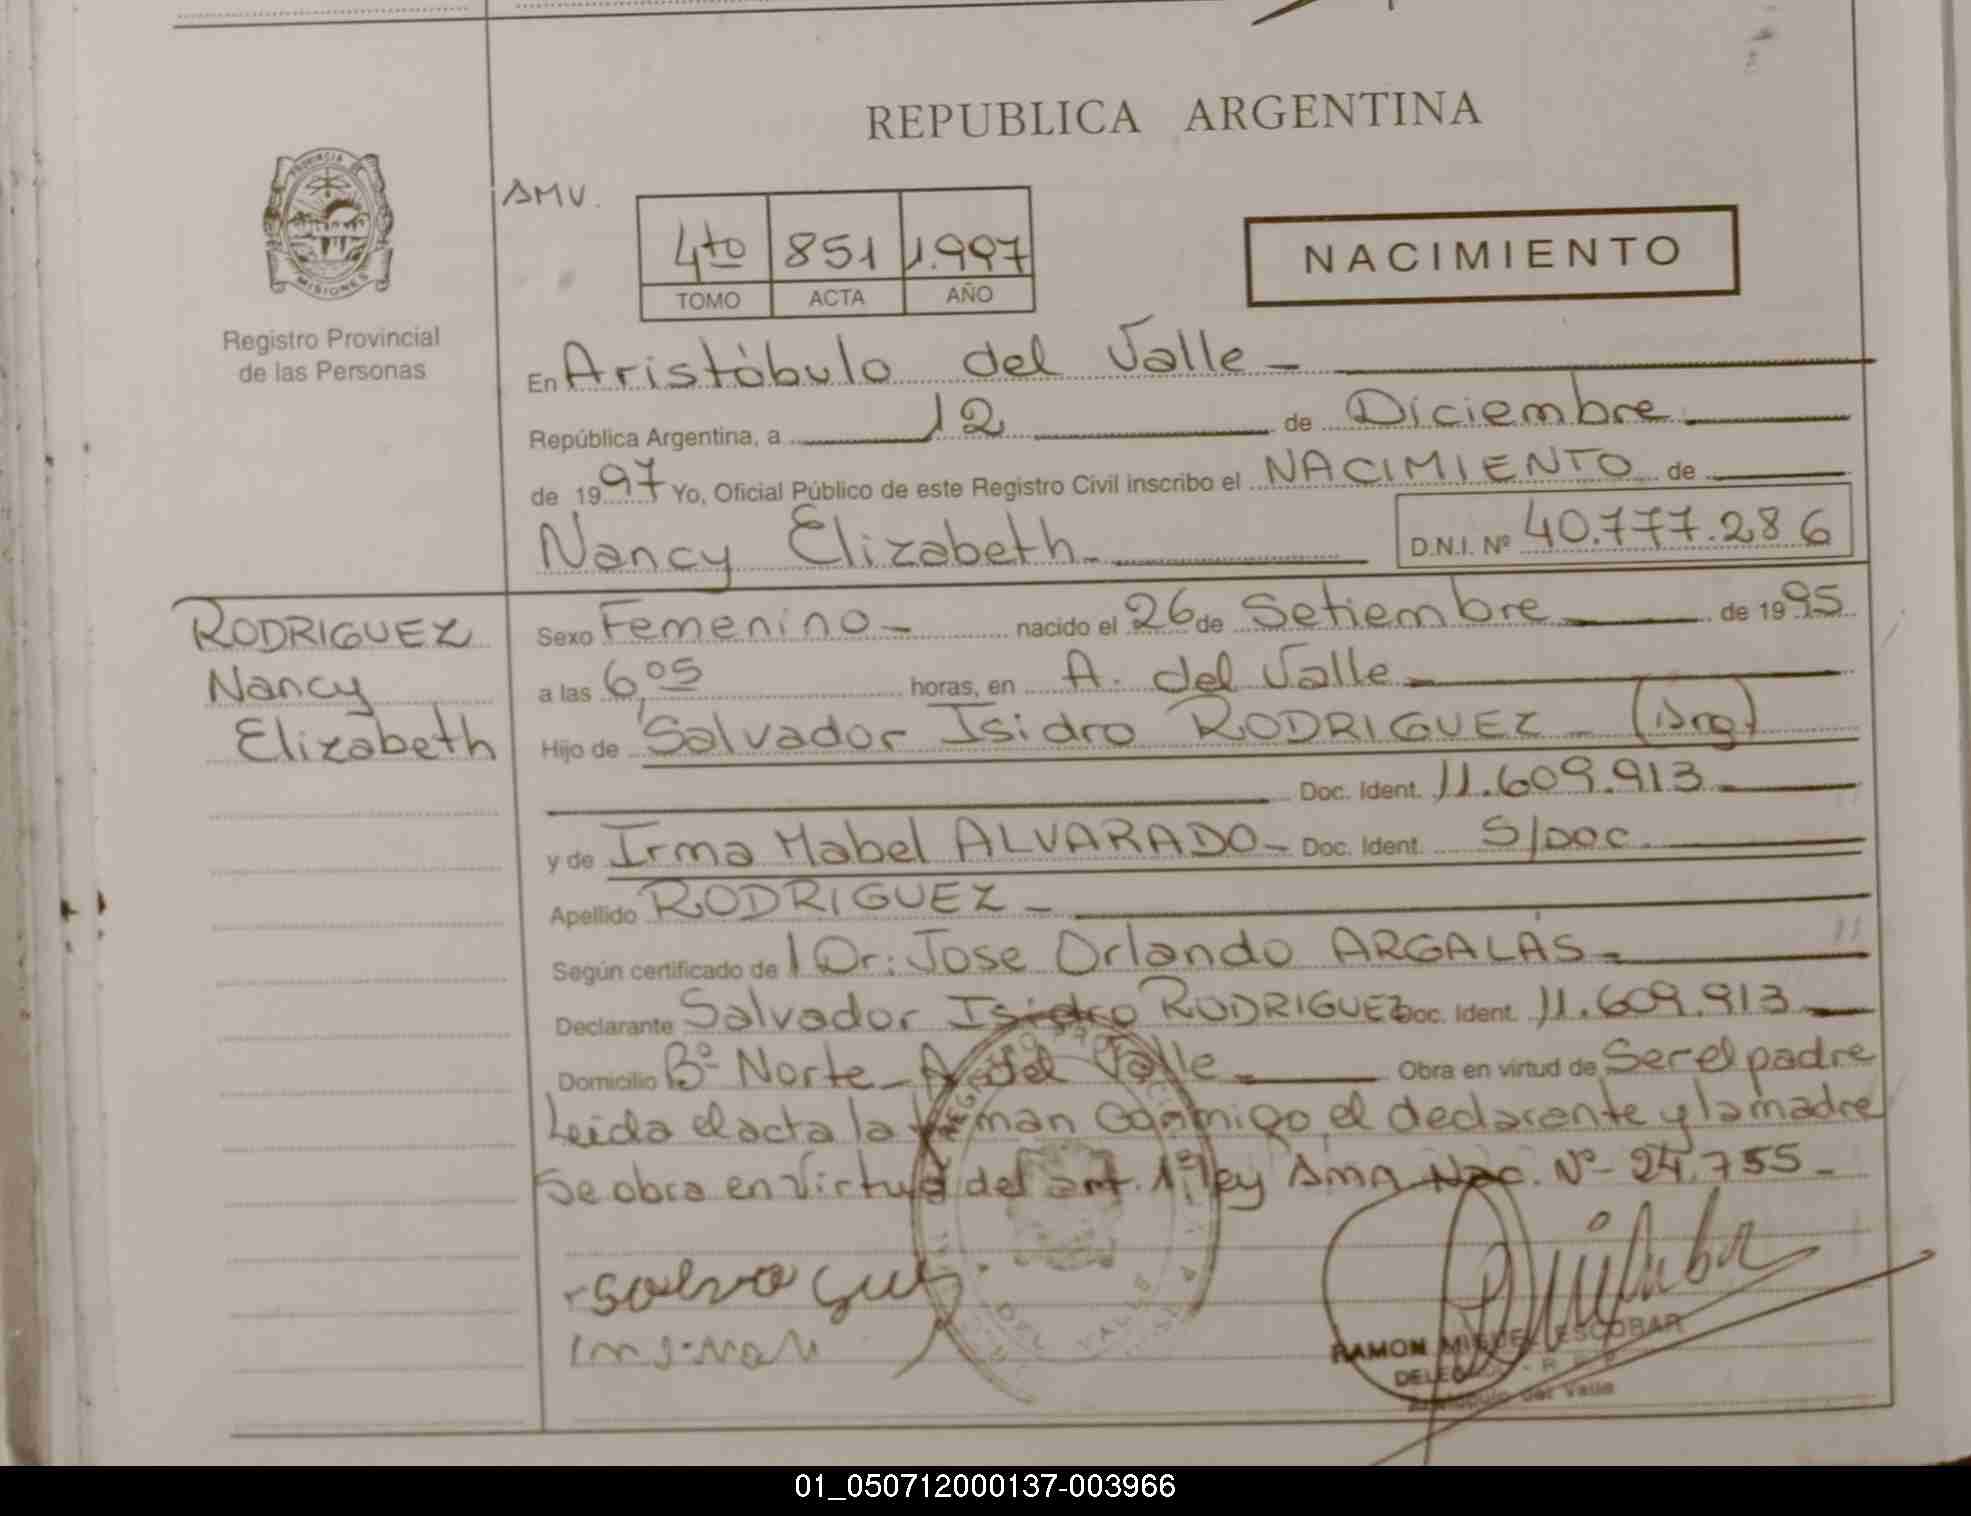 REPUBLICA ARGENTINA
PROVINCIA DE
MISIONES
Registro Provincial
de las Personas
AMV.
4to 851 1.997
TOMO ACTA AÑO
NACIMIENTO
En Aristóbulo del Valle -
República Argentina, a 12 de Diciembre
de 1997 Yo, Oficial Público de este Registro Civil inscribo el NACIMIENTO de
Nancy Elizabeth - D.N.I. Nº 40.777.286
RODRIGUEZ
Nancy
Elizabeth
Sexo Femenino - nacido el 26 de Setiembre de 1995
a las 6,05 horas, en A. del Valle
Hijo de Salvador Isidro RODRIGUEZ - (Arg)
Doc. Ident. 11.609.913
y de Irma Mabel ALVARADO - Doc. Ident. S/DOC
Apellido RODRIGUEZ -
Según certificado de Dr: Jose Orlando ARGALAS -
Declarante Salvador Isidro RODRIGUEZ Doc. Ident. 11.609.913
Domicilio Bº Norte - A. del Valle Obra en virtud de Ser el padre
Leida el acta la firman conmigo, el declarante y la madre
Se obra en virtud del art. 1º ley Amn Nac. Nº 24.755 -
DEL VALLE
RAMON MIGUEL ESCOBAR
del Valle
01_050712000137-003966